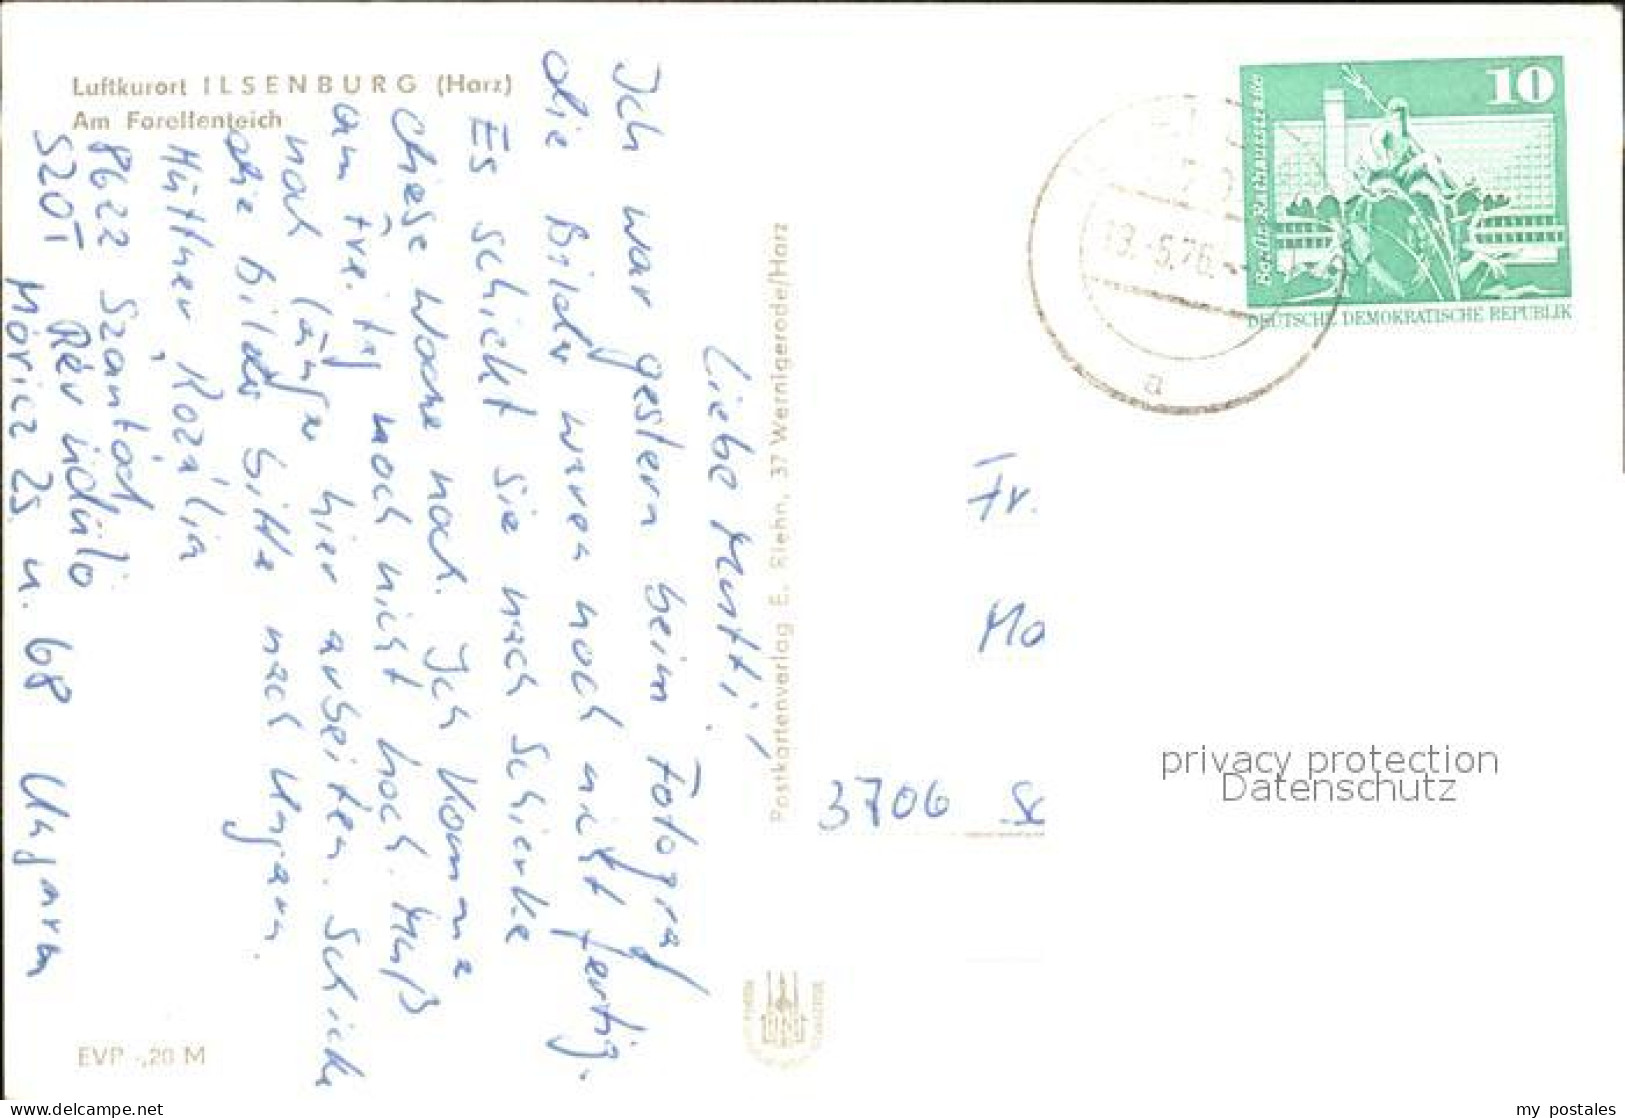 Luftkurort ILSENBURG (Harz)
Am Forellenteich
Liebe Mutti!
Ich war gestern beim Fotograf
die Bilder waren noch nicht fertig.
Es schickt sie nach Schierke
diese Woche noch. Ich komme
am Frei.tag noch nicht hoch. Muß
noch länger hier arbeiten. Schicke
die Bilder bitte nach Ungarn.
Hüttner Rozália
8622 Szántód
Rév üdülő
SZOT
Móricz Zs. u. 68 Ungarn
Postkartenverlag E. Riehn, 37 Wernigerode/Harz
EVP -,20 M
10
Berlin-Rathausstraße
DEUTSCHE DEMOKRATISCHE REPUBLIK
-5.76.-
a
Fr.
Mo
3706 Sc
privacy protection
Datenschutz
www.delcampe.net
my_postales